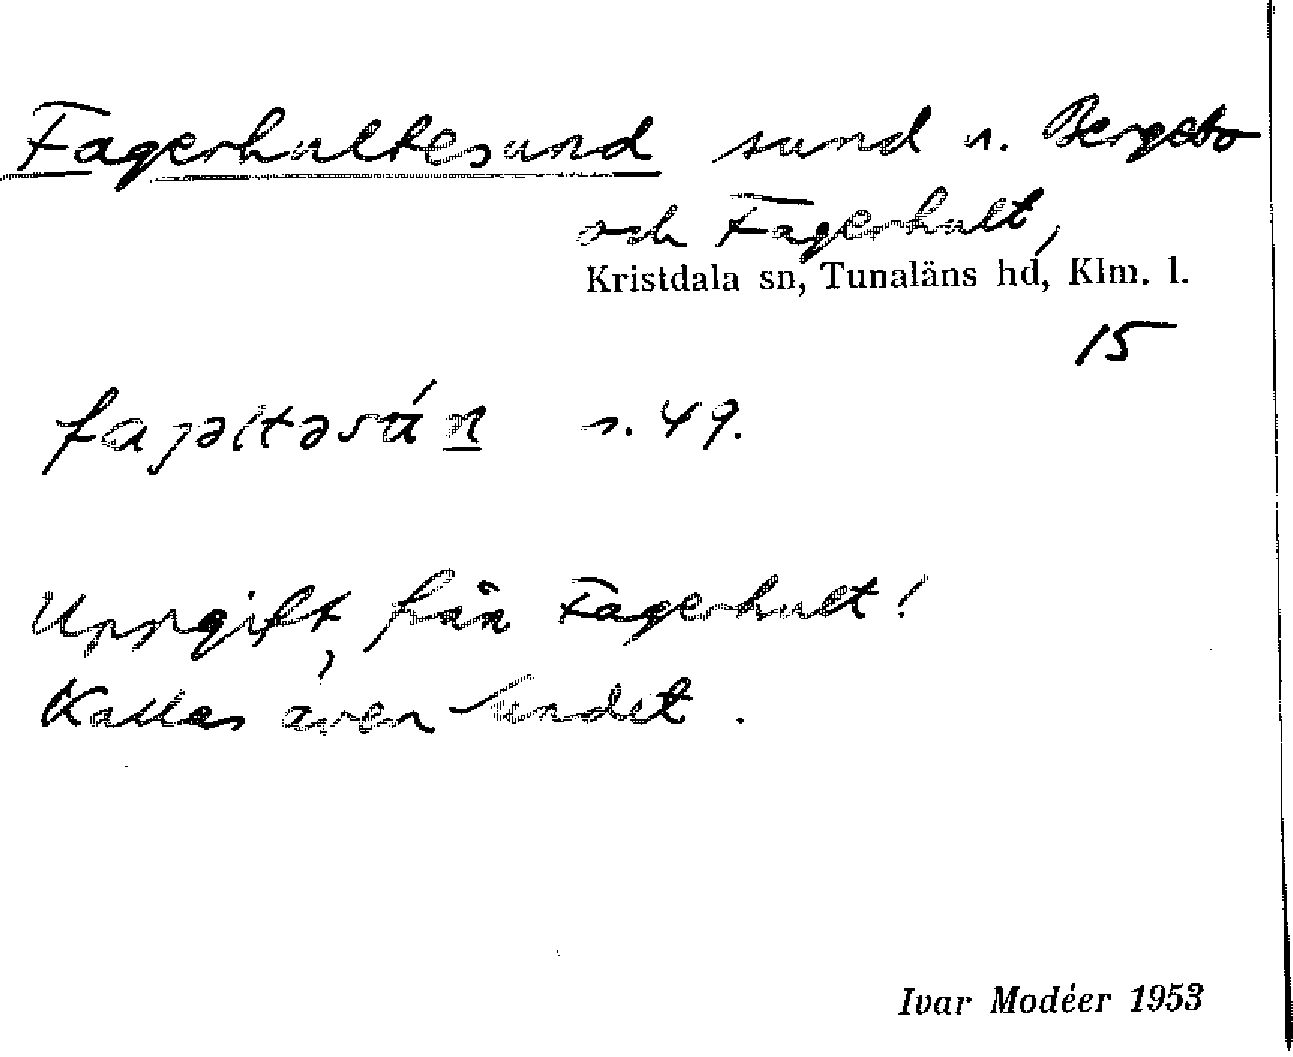 Fagerhultesund sund u. Bergsbo
och Fagerhult,
Kristdala sn, Tunaläns hd, Klm. l.
15
s. 49.
Uppgift, från Fagerhult!
Kallas även Sundet.
Ivar Modéer 1953